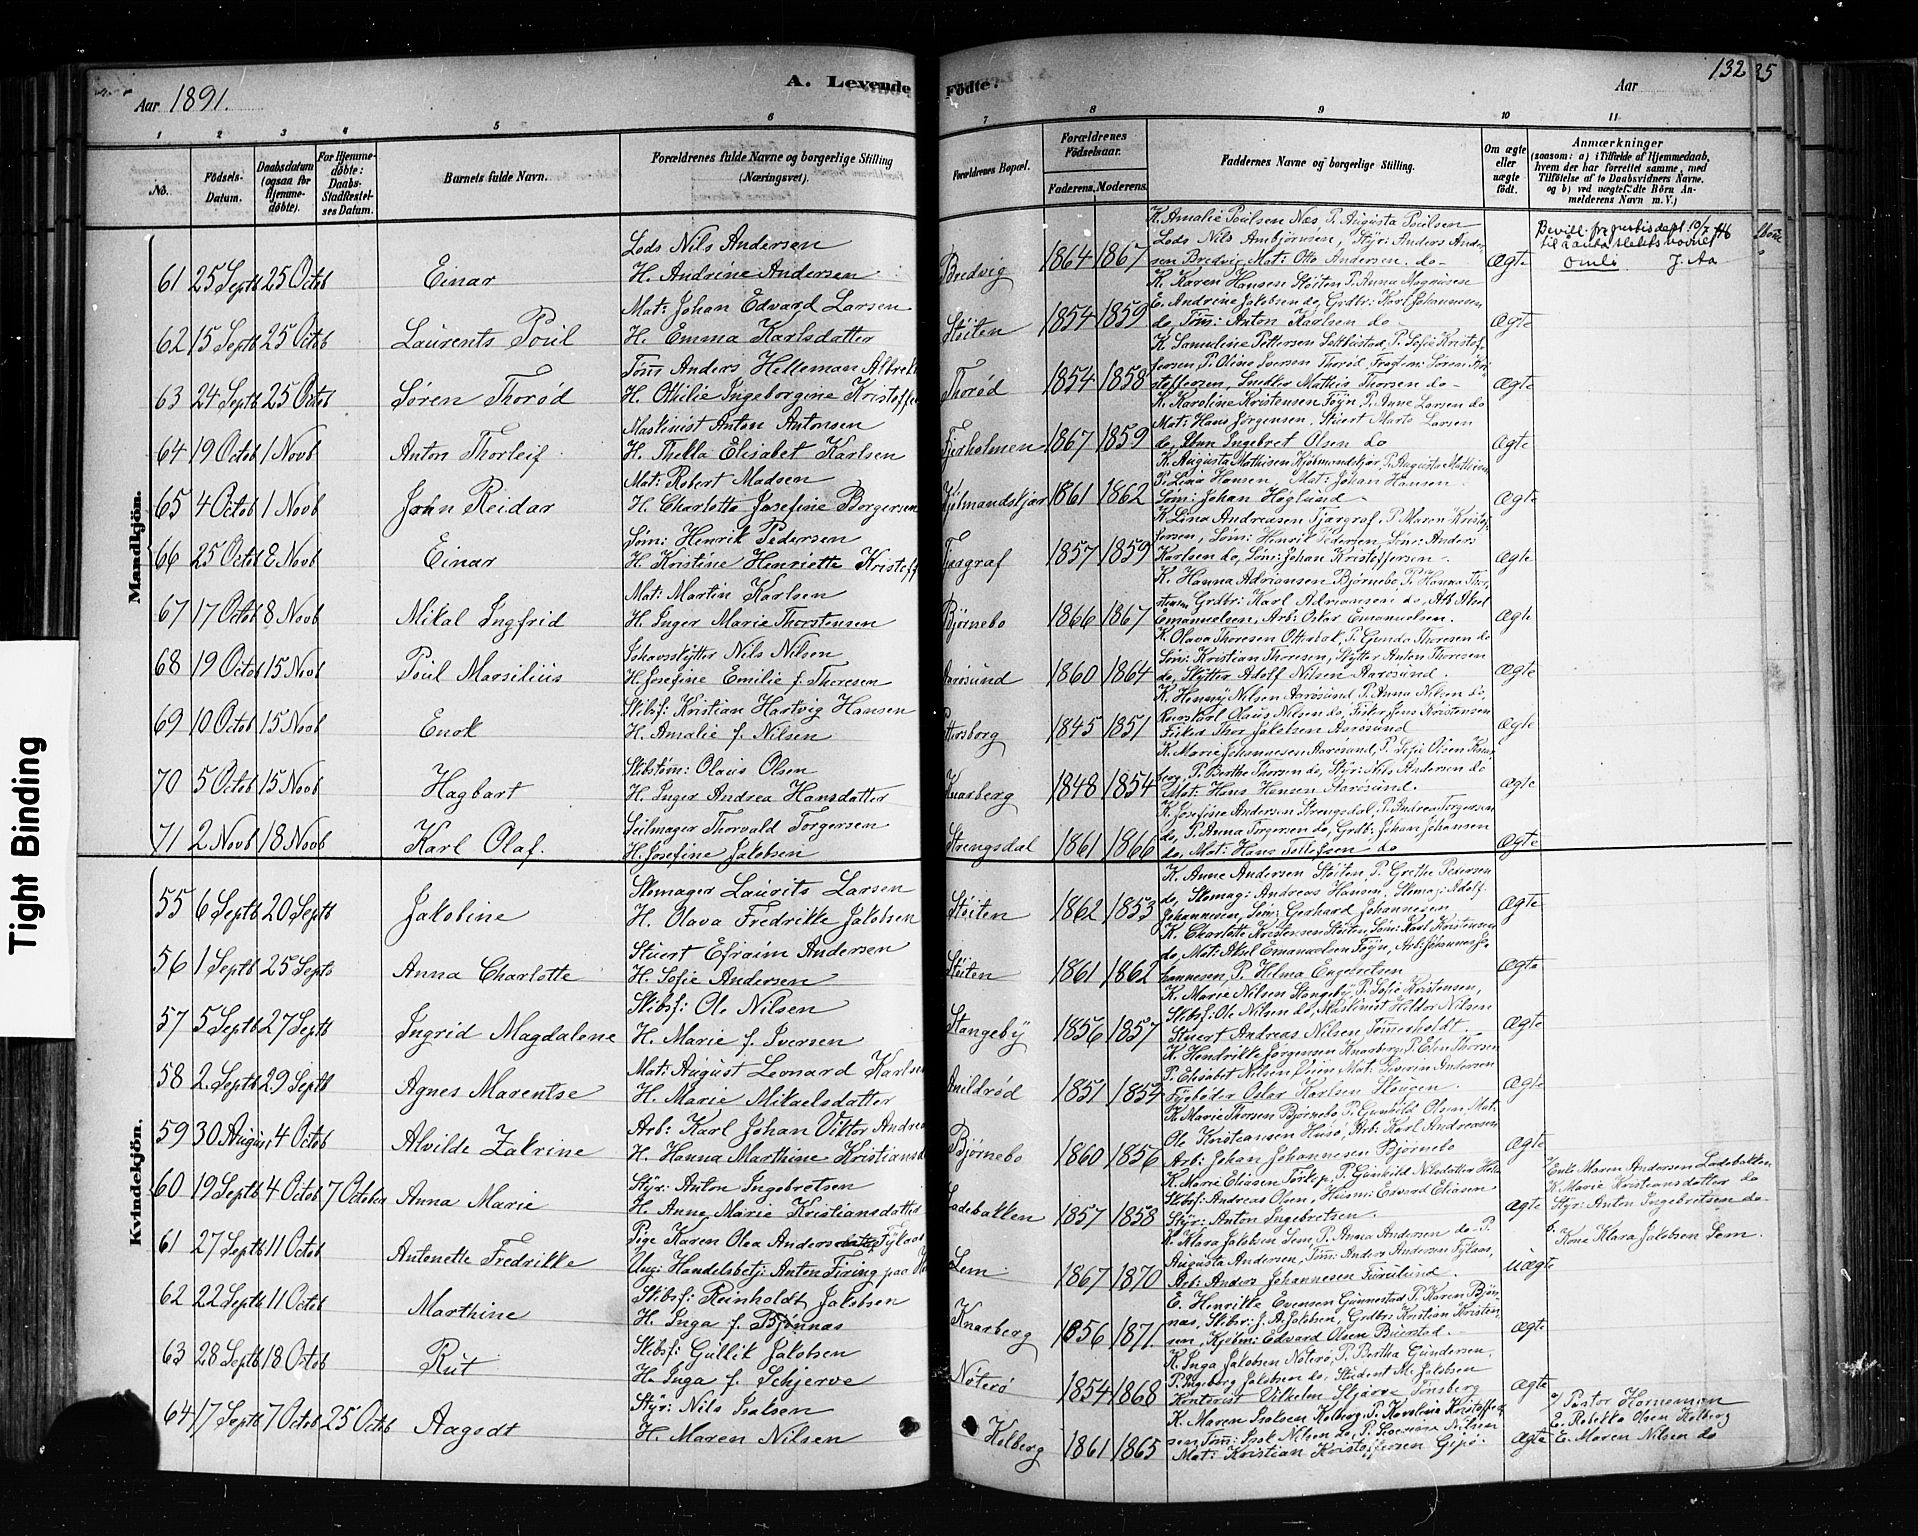 Aar 1891.
A. Levende Födte.
Aar
132
25
1 2 3 4 5 6 7 8 9 10 11
No.
Födsels-Datum.
Daabsdatum (ogsaa for Hjemme-döbte).
For Hjemme-döbte: Daabs-Stadfæstel-ses Datum.
Barnets fulde Navn.
Forældrenes fulde Navne og borgerlige Stilling (Næringsvei).
Forældrenes Bopæl.
Forældrenes Födselsaar.
Faderens. Moderens.
Faddernes Navne og borgerlige Stilling.
Om ægte eller uægte födt.
Anmærkninger
(saasom: a) i Tilfælde af Hjemmedaab, hvem der har forrettet samme, med Tilföielse af to Daabsvidners Navne, og b) ved uægtefødte Börn An-melderens Navn m. V.)
Tight Binding
Mandkjön.
61 25 Septb 25 Octob Einar
Lods Nils Andersen
H. Andrine Andersen
Bredvig 1864 1867
K. Amalie Poulsen Næs P. Augusta Poulsen
Lods Nils Ambjørnsen, Styr: Anders Ander-
sen Bredvig Mat: Otto Andersen do
Ægte
62 15 Septb 25 Octob Laurents Poul
Mat: Johan Edvard Larsen
H. Emma Karlsdatter
Støiten 1854 1859
K. Karen Hansen Støiten P. Anna Magnusen
E. Andrine Jakobsen do, Grdbr: Karl Johannesen
do, Tøm: Anton Karlsen do
Ægte
63 24 Septb 25 Octob Søren Thorød
Tøm: Anders Helleman
H. Othilie Ingeborgine
Thorød 1854 1858
Ægte
64 19 Octob 1 Novb Anton Thorleif
Maskinist Anton Antonsen
H. Thekla Elisabet Karlsen
Fjærholmen 1867 1859
K. Karoline Kristensen Føyn P. Anne Larsen do
Mat: Hans Jørgensen, Stuert Marts Larsen
do, Ingebret Olsen do
Ægte
65 4 Octob 1 Novb John Reidar
Mat: Robert Madsen
H. Charlotte Josefine Borgersen
Kjølmandskjær 1861 1862
P. Lina Hansen, Mat: Johan Hansen
Søm: Johan Høglund
Ægte
66 25 Octob 8 Novb Einar
Søm: Henrik Pedersen
H. Kristine Henriette
Tjærgraf 1857 1859
K. Lina Andreasen Tjærgraf, P. Maren Kristof-
fersen, Søm: Henrik Pedersen, Søm: Anders
Karlsen do, Søm: Johan Kristoffersen
Ægte
67 17 Octob 8 Novb Mikal Ingfrid
Mat: Martin Karlsen
H. Inger Marie Thorstensen
Bjørnebo 1866 1867
K. Hanna Adriansen Bjørnebo P. Hanna Thor-
stensen Grdbr: Karl Adriansen do, Arb Aksel
Emanuelsen, Arb: Oskar Emanuelsen.
Ægte
68 19 Octob 15 Novb Poul Marsilius
Ishavsskytter Nils Nilsen
H. Josefine Emilie f. Thoresen
Aarøsund 1860 1864
K. Olava Thoresen Otterbæk, P. Gunda Thoresen do
Søm: Kristian Thoresen, Skytter Anton Thoresen
do, Skytter Adolf Nilsen Aarøsund.
Ægte
69 10 Octob 15 Novb Enok
Skibsf: Kristian Hartvig Hansen
H. Amalie f. Nilsen
1845 1851
K. Henny Nilsen Aarøsund P. Anna Nilsen do,
Olaus Nilsen do, Fisker Jens Kristensen
Fisker Thor Jakobsen Aarøsund
Ægte
70 5 Octob 15 Novb Hagbart
Skibstøm: Olaus Olsen
H. Inger Andrea Hansdatter
Knarberg 1848 1854
K. Marie Johannesen Aarøsund, P. Sofie Olsen Knar-
berg, P. Berthe Thorsen do, Styr: Nils Andersen do
Mat: Hans Hansen Aarøsund.
Ægte
71 2 Novb 18 Novb Karl Olaf.
Seilmager Thorvald Torgersen
H. Josefine Jakobsen
Strengsdal 1861 1866
K. Josefine Andersen Strengsdal, P. Andrea Torgersen
do, P. Anna Torgersen do, Grdb: Johan Johansen
do, Mat: Hans Tollefsen do
Ægte
Kvindekjön.
55 6 Septb 20 Septb Jakobine
Skomager Laurits Larsen
H. Olava Fredrikke Jakobsen
Støiten 1862 1853
K. Anne Andersen Støiten, P. Grethe Pedersen
do, Skomag: Andreas Hansen, Skomag: Adolf
Johannesen, Søm: Gerhard Johannesen
Ægte
56 1 Septb 25 Septb Anna Charlotte
Stuert Efraim Andersen
H. Sofie Andersen
Støiten 1861 1862
K. Charlotte Kristensen Støiten, Søm: Karl Kristensen
do, Mat: Aksel Emanuelsen Føyn, Arb: Johannes Jo-
hannesen, P. Hilma Engebretsen
Ægte
57 5 Septb 27 Septb Ingrid Magdalene
Skibsf: Ole Nilsen
H. Marie f. Iversen
Stangeby 1856 1857
K. Marie Nilsen Stangeby P. Sofie Kristensen,
Skibsf: Ole Nilsen do, Maskinist Hildor Nilsen
Stuert Andreas Nilsen Tømmerholdt
Ægte
58 2. Septb 29 Septb Agnes Marentse
Mat: August Leonard
H. Marie Mikaelsdatter
1851 1854
K. Hendrikke Jørgensen Knarberg, P. Elen Thorsen
P. Elisabet Nilsen Mat: Severin Andersen
Fyrbøder Oskar Karlsen Skougen.
Ægte
59 30 August 4 Octob Alvilde Zakrine
Arb: Karl Johan Viktor
H. Hanna Marthine
Bjørnebo 1860 1856
K. Marie Thorsen Bjørnebo P. Gunhild Olsen, Mat.
Ole Kristiansen Husø, Arb: Karl Andreasen
Arb: Johan Johannesen Bjørnebo
Ægte
60 19 Septb 4 Octob 7 October Anna Marie
Styr: Anton Ingebretsen
H. Anne Marie Kristiansdatter
Ladebakken 1857 1858
Skibsf: Andreas Olsen, Husm: Edvard Eliasen
Styr: Anton Ingebretsen.
Ægte
Enke Maren Andersen Ladebakken
K. Marie Kristiansdatter do
Styr: Anton Ingebretsen do
61 27 Septb 11 Octob Antonette Fredrikke
Pige Karen Olea Andersdatter
Ung: Handelsbetj: Anton Firing paa
Lem 1867 1870
K. Klara Jakobsen Lem, P. Anna Andersen do P.
Augusta Andersen, Tøm: Anders Andersen
Arb: Anders Johannesen Furulund
Uægte
b. Kone Klara Jakobsen Lem.
62 22 Septb 11 Octob Marthine
Skibsf: Reinholdt Jakobsen
H. Inga f. Bjønnæs
Knarberg 1856 1871.
E. Henrikke Evensen Gunnestad P. Karen Bjøn-
næs, Skibsr: J. A. Jakobsen, Grdbr: Kristian Kristen-
sen, Kjøbm: Edvard Olsen
Ægte
63 28 Septb 18 Octob Rut
Skibsf: Gullik Jakobsen
H. Inga f. Schjerve
Nøterø 1854 1868
K. Inga Jakobsen Nøterø, P. Bertha Gundersen,
P. Ingeborg Jakobsen do, Student M. Jakobsen
Kontorist Vilhelm Skjærve Tønsberg
Ægte
64 17 Septb 7 Octob 25 Octob Aagodt
Styr: Nils Isaksen
H. Maren Nilsen
Kolberg 1861 1865
K. Maren Isaksen Kolberg, P. Karoline Kristoffer-
sen, Tøm: Isak Nilsen do, P. Severine Nilsen
Mat: Kristian Kristoffersen Gipø.
Ægte
a/ Pastor Hornemann
E. Rebekka Olsen Kolberg
E. Maren Nilsen do